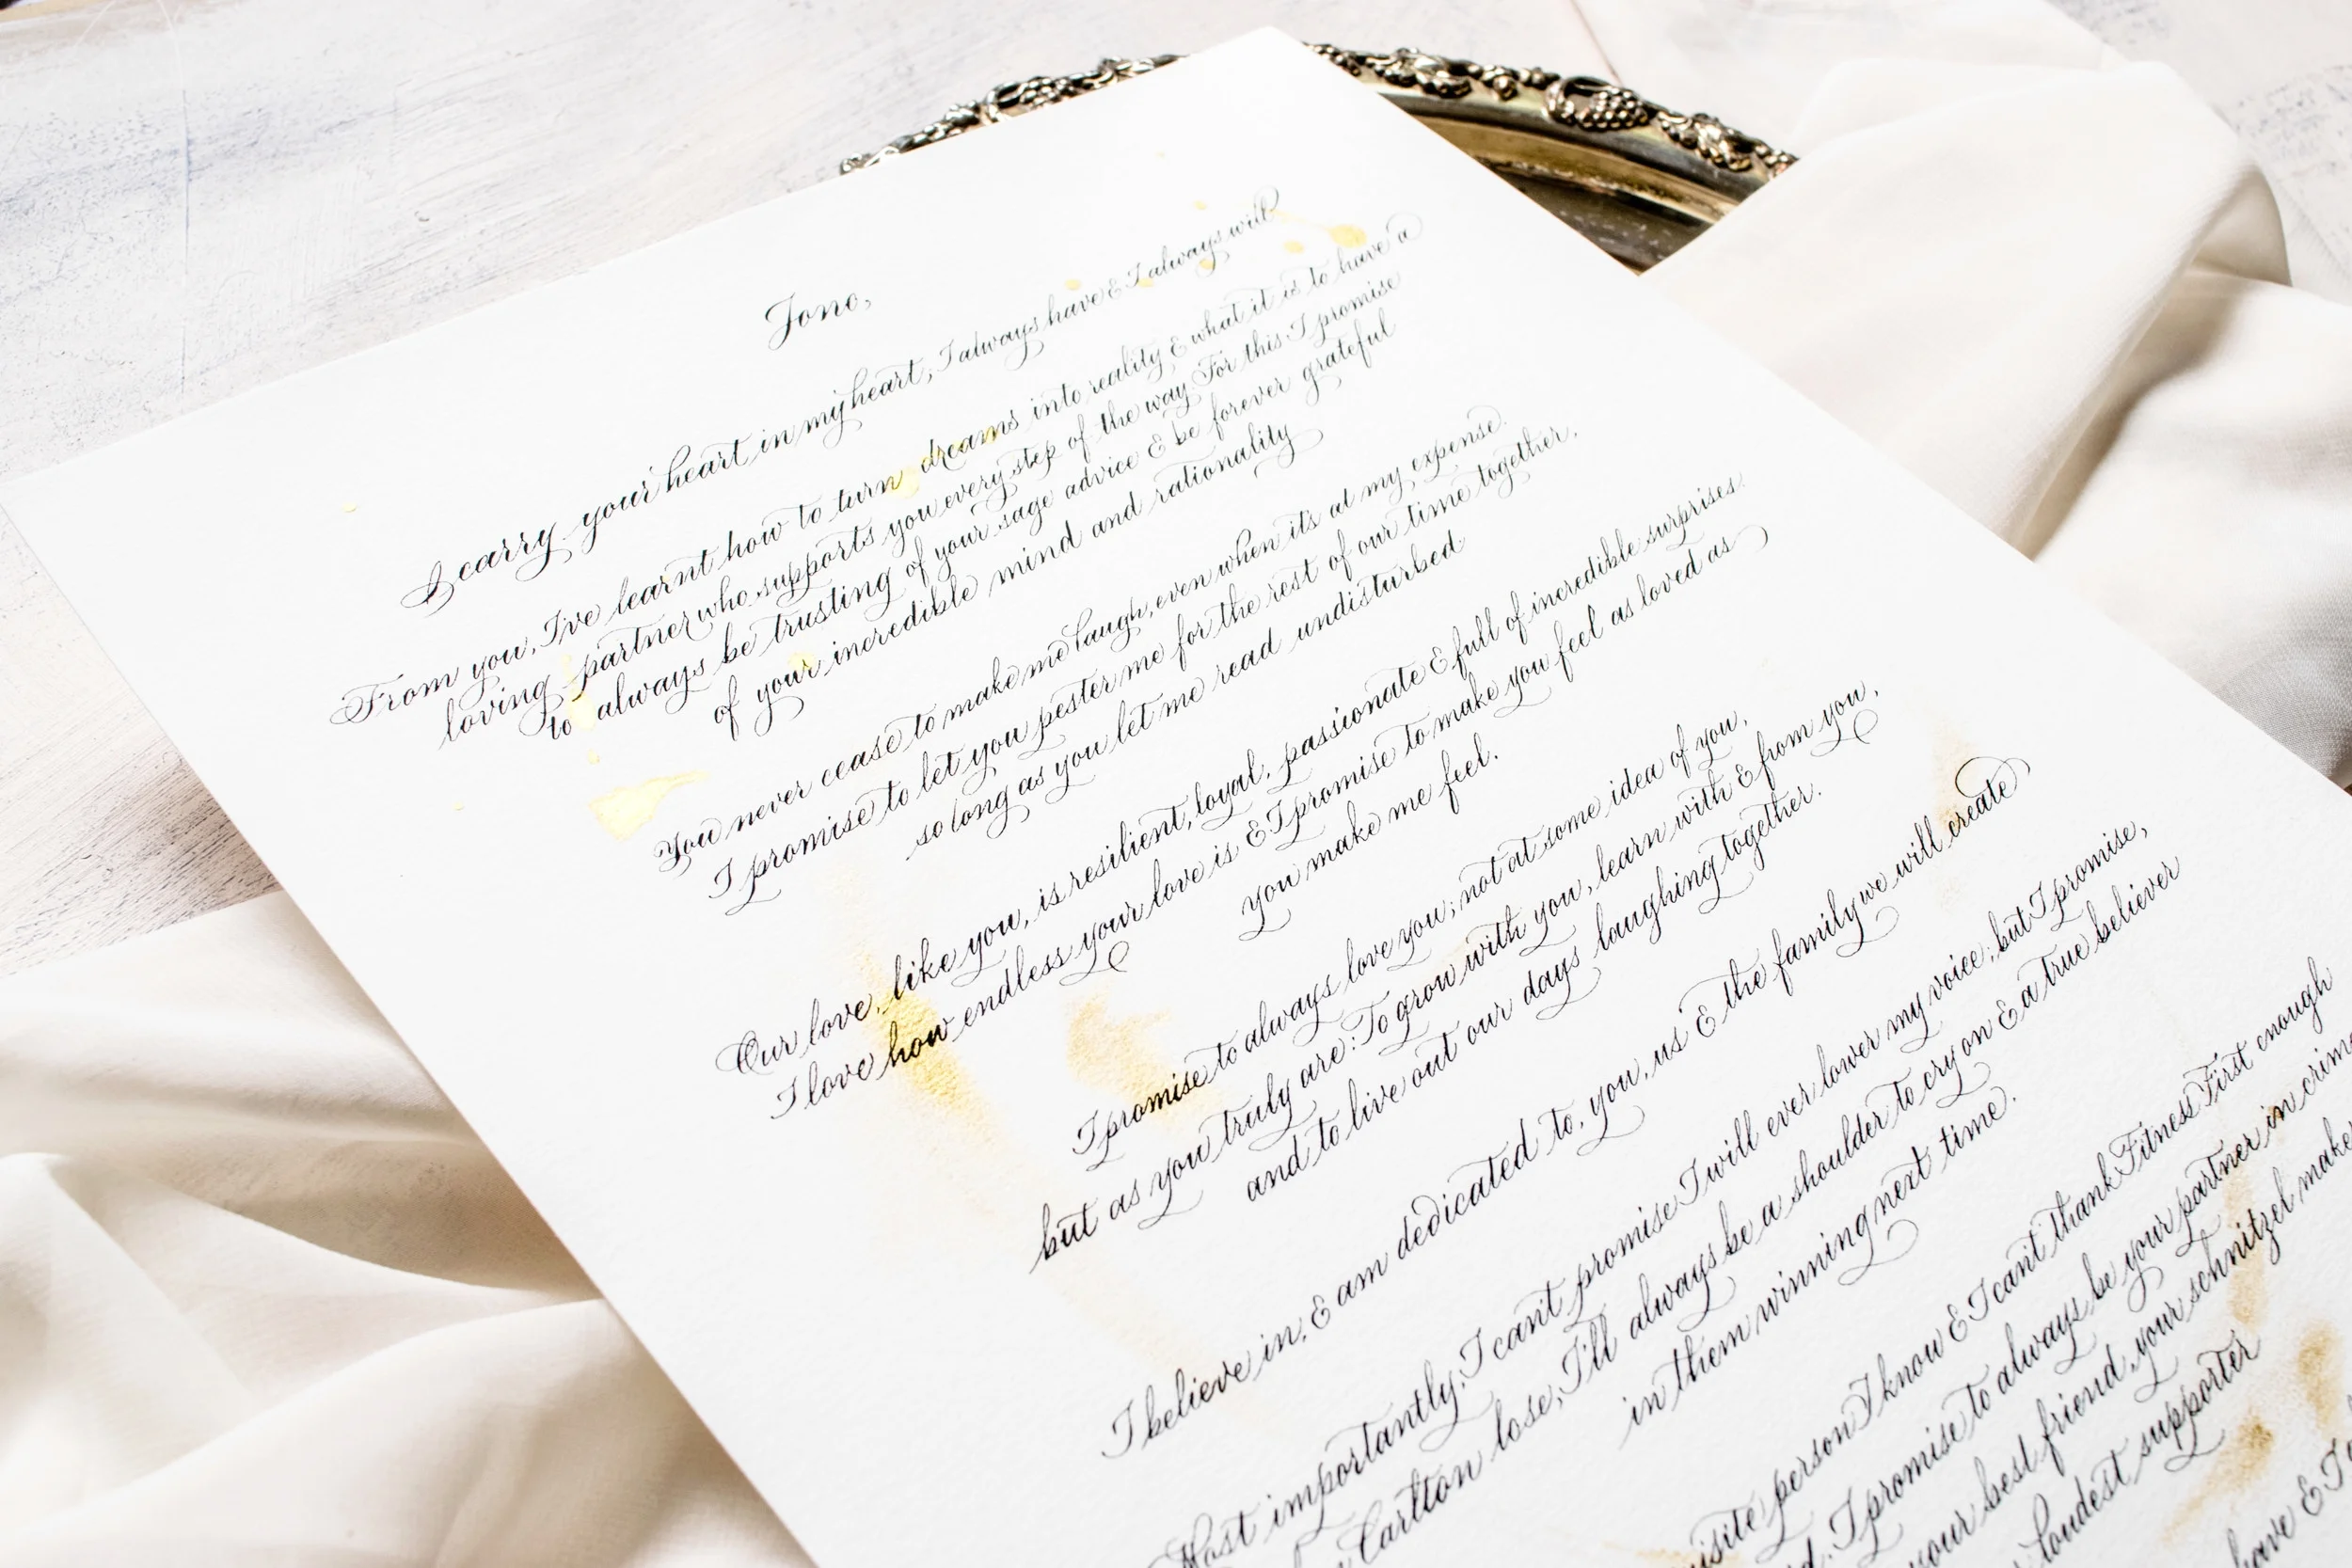 Jono,
I carry your heart in my heart, I always have & I always will
From you, I've learnt how to turn dreams into reality & what it is to have a
loving partner who supports you every step of the way. For this I promise
to always be trusting of your sage advice & be forever grateful
of your incredible mind and rationality
You never cease to make me laugh, even when it's at my expense.
I promise to let you pester me for the rest of our time together,
so long as you let me read undisturbed.
Our love, like you, is resilient, loyal, passionate & full of incredible surprises.
I love how endless your love is & I promise to make you feel as loved as
you make me feel.
I promise to always love you; not at some idea of you,
but as you truly are: To grow with you, learn with & from you,
and to live out our days laughing together.
I believe in, & am dedicated to, you, us & the family we will create
Most importantly, I can't promise I will ever lower my voice; but I promise,
Carlton lose, I'll always be a shoulder to cry on & a true believer
in them winning next time.
person I know & I can't thank Fitness First enough
I promise to always be your partner in crime
your best friend, your schnitzel maker
loudest supporter
have & I